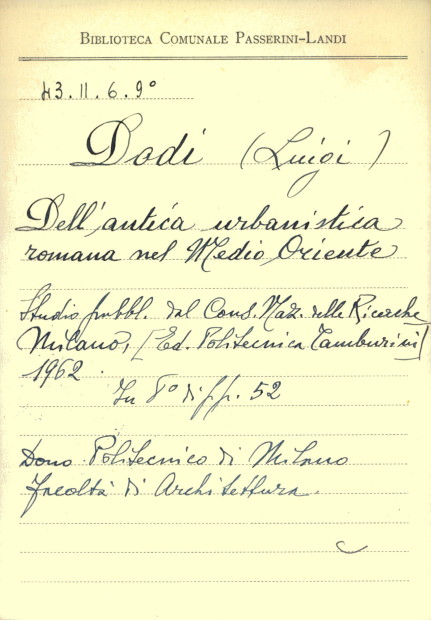 BIBLIOTECA COMUNALE PASSERINI-LANDI
43.II.6.9°
Dodi (Luigi)
Dell'antica urbanistica
romana nel Medio Oriente
Studio pubbl. dal Cons. Naz. delle Ricerche
Milano, [Ed. Politecnica Tamburini]
1962.
In 8° di pp. 52
Dono Politecnico di Milano
facoltà di Architettura.